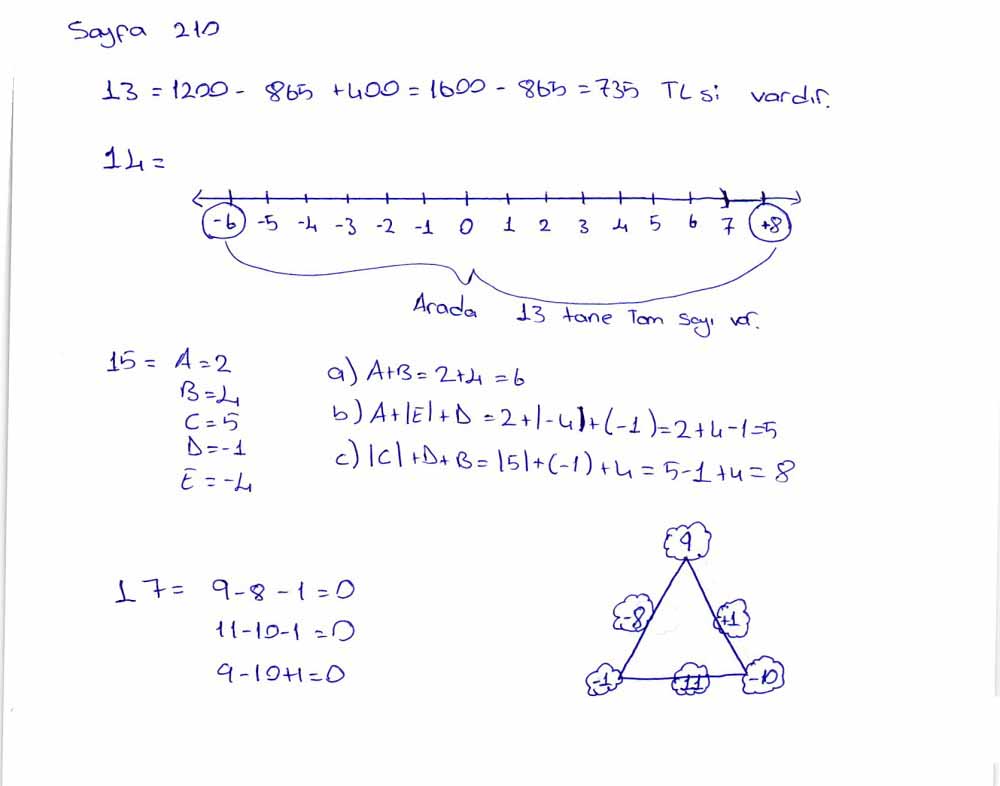 Sayfa 210
13 = 1200 - 865 + 400 = 1600 - 865 = 735 TL si vardır.
14 =
-6 -5 -4 -3 -2 -1 0 1 2 3 4 5 6 7 +8
Arada 13 tane Tam sayı var.
15 = A = 2
B = 4
C = 5
D = -1
E = -4
a) A+B = 2+4 = 6
b) A+|E|+D = 2+|-4|+(-1) = 2+4-1=5
c) |C|+D+B = |5|+(-1)+4 = 5-1+4 = 8
17 = 9-8-1 = 0
11-10-1 = 0
9-10+1 = 0
9
-8 +1
-1 11 -10